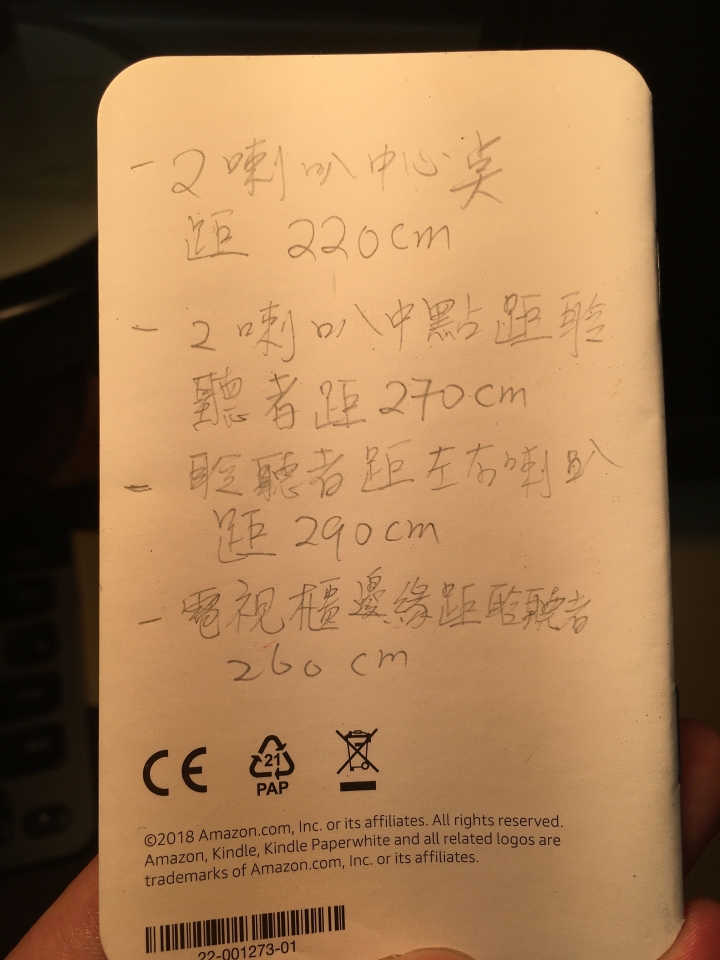 - 2喇叭中心点
距 220cm
- 2喇叭中點距聆
聽者距270cm
- 聆聽者距左右喇叭
距 290cm
- 電視櫃邊緣距聆聽者
260 cm
CE
21
PAP
©2018 Amazon.com, Inc. or its affiliates. All rights reserved.
Amazon, Kindle, Kindle Paperwhite and all related logos are
trademarks of Amazon.com, Inc. or its affiliates.
22-001273-01